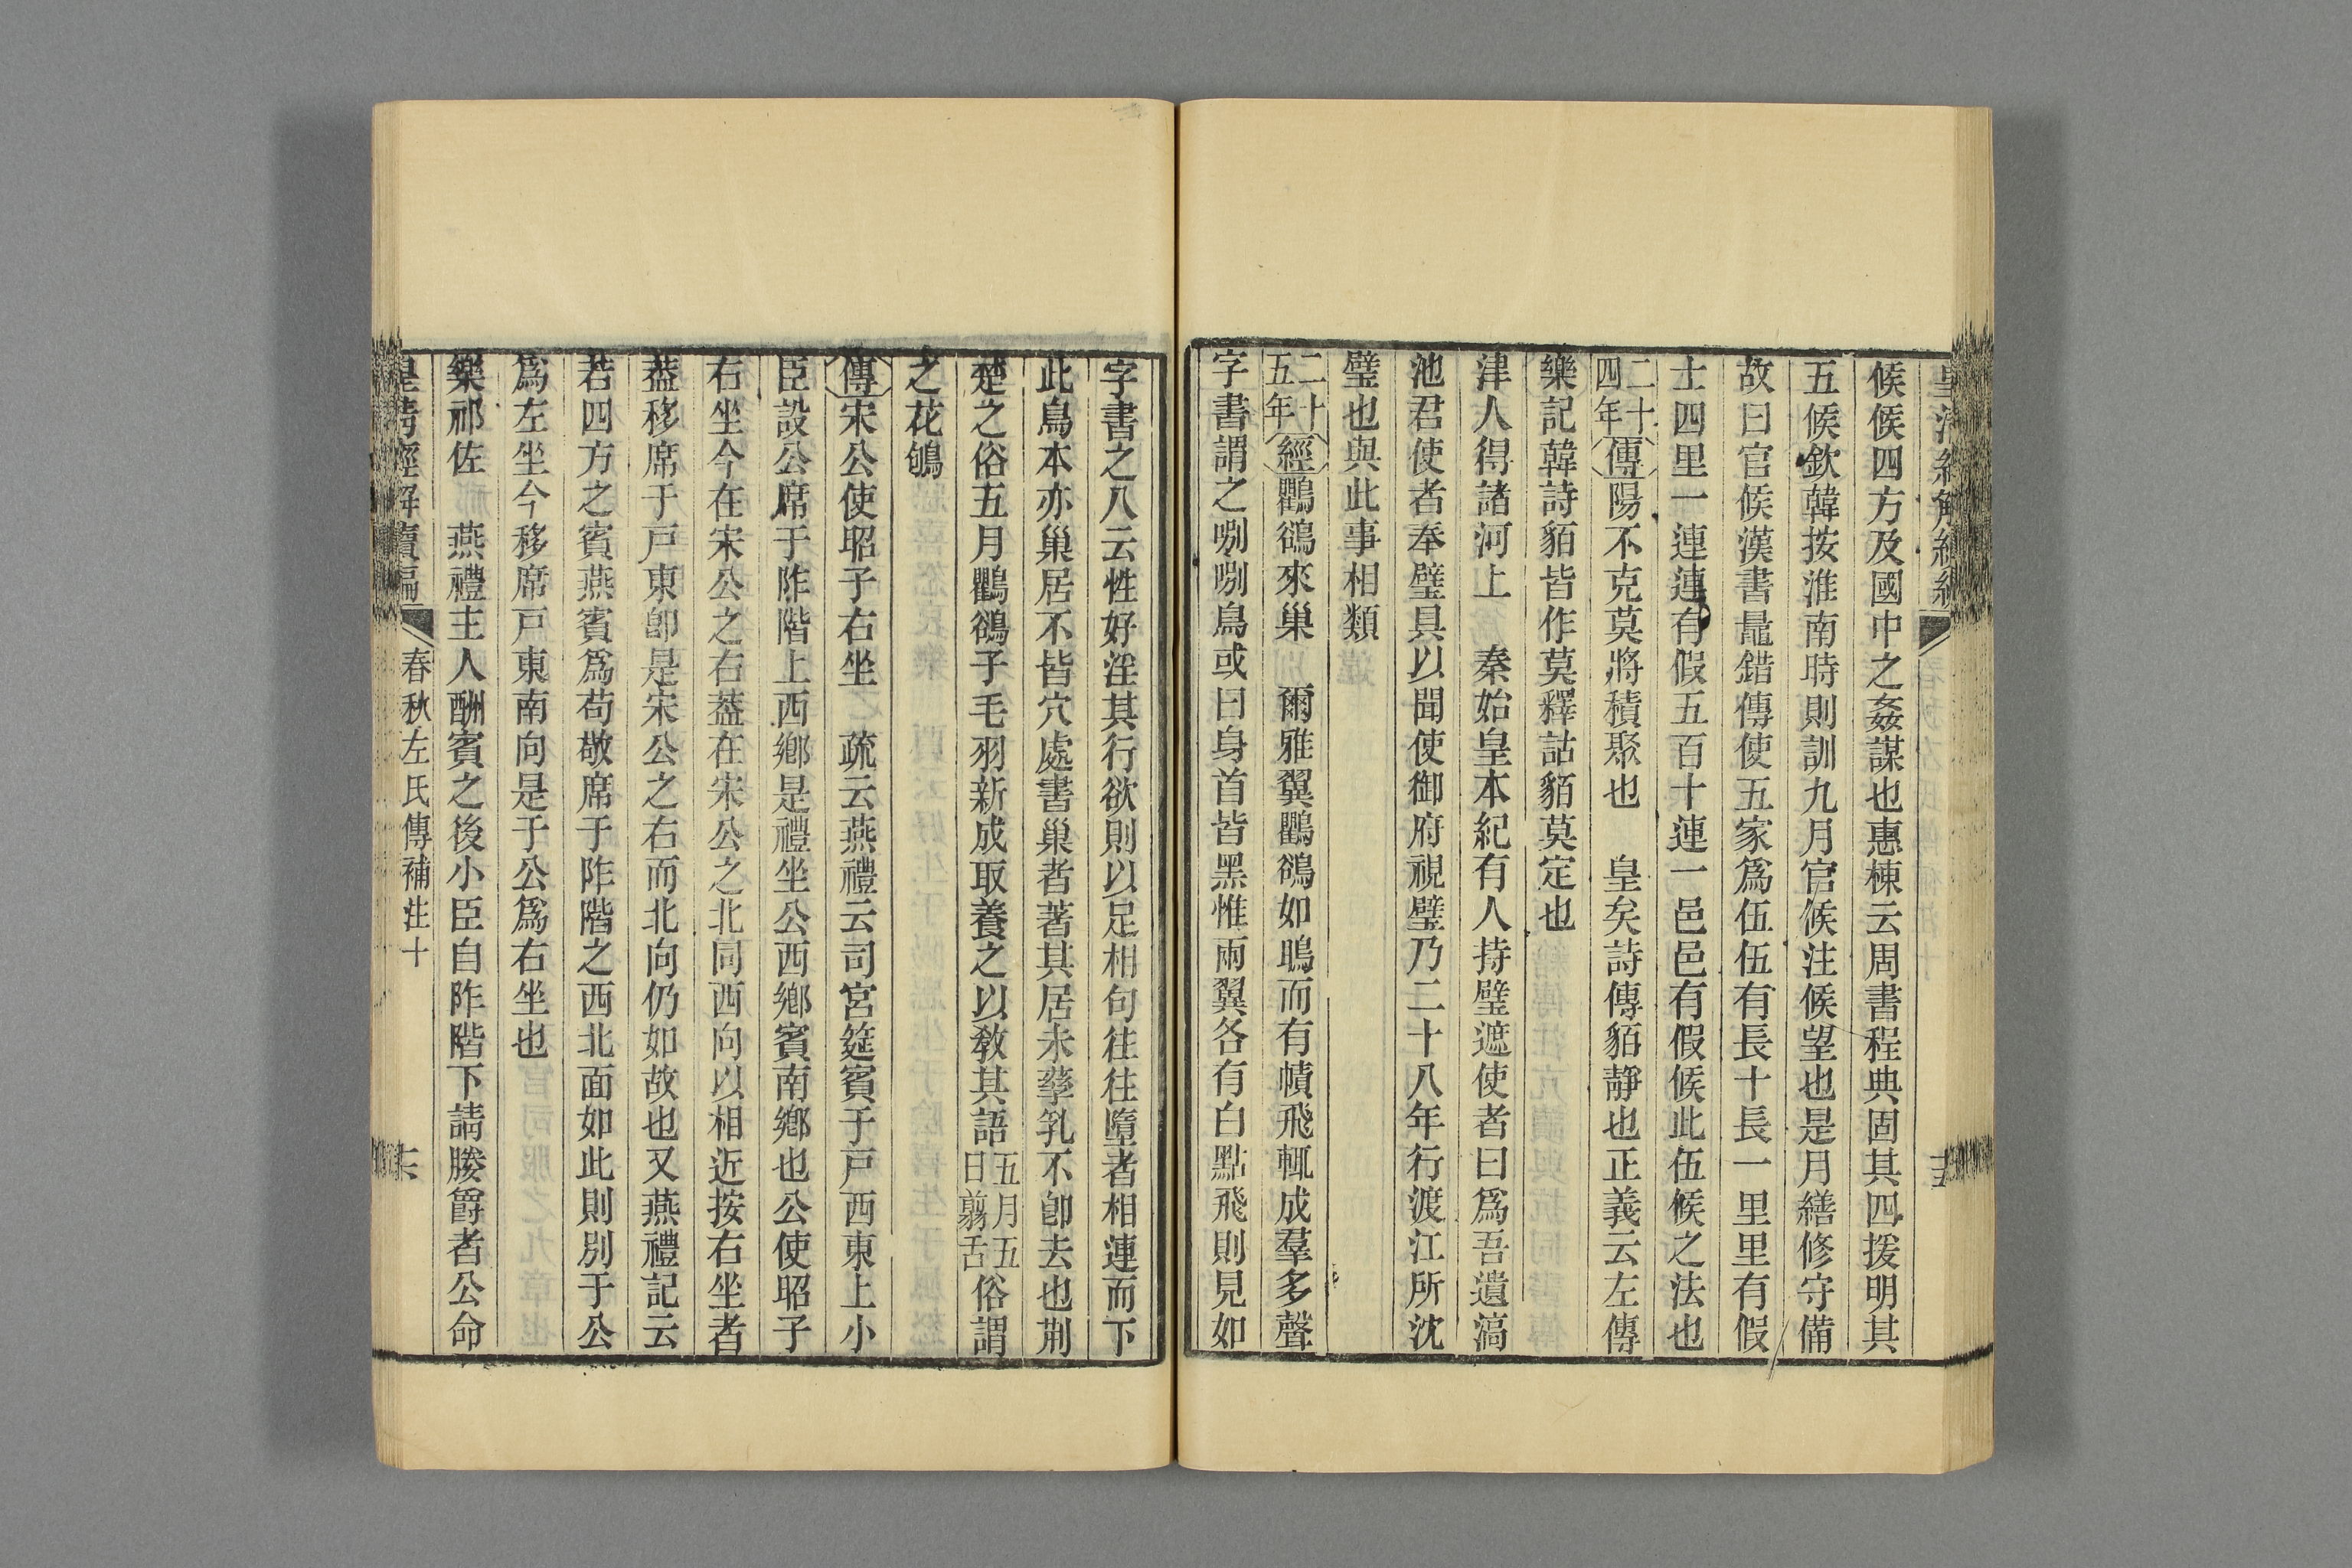 候候四方及國中之姦謀也惠棟云周書程典固其四援明其
五候欽韓按淮南時則訓九月官候注候望也是月繕修守備
故曰官候漢書鼂錯傳使五家爲伍伍有長十長一里里有假
士四里一連連有假五百十連一邑邑有假候此伍候之法也
二十四年傳陽不克莫將積聚也　皇矣詩傳貊靜也正義云左傳
樂記韓詩貊皆作莫釋詁貊莫定也
津人得諸河上　秦始皇本紀有人持璧遮使者曰爲吾遺滈
池君使者奉璧具以聞使御府視璧乃二十八年行渡江所沈
璧也與此事相類
二十五年經鸜鵒來巢　爾雅翼鸜鵒如鴝而有幘飛輒成羣多聲
字書謂之唎唎鳥或曰身首皆黑惟兩翼各有白點飛則見如
字書之八云性好淫其行欲則以足相句往往墮者相連而下
此鳥本亦巢居不皆穴處書巢者著其居未孳乳不卽去也荆
楚之俗五月鸜鵒子毛羽新成取養之以教其語五月五日翦舌俗謂
之花鴝
傳宋公使昭子右坐　疏云燕禮云司宮筵賓于戸西東上小
臣設公席于阼階上西鄉是禮坐公西鄉賓南鄉也公使昭子
右坐今在宋公之右葢在宋公之北同西向以相近按右坐者
葢移席于戸東卽是宋公之右而北向仍如故也又燕禮記云
若四方之賓燕賓爲苟敬席于阼階之西北面如此則別于公
爲左坐今移席戸東南向是于公爲右坐也
樂祁佐　燕禮主人酬賓之後小臣自阼階下請媵爵者公命
皇清經解續編　春秋左氏傳補注十